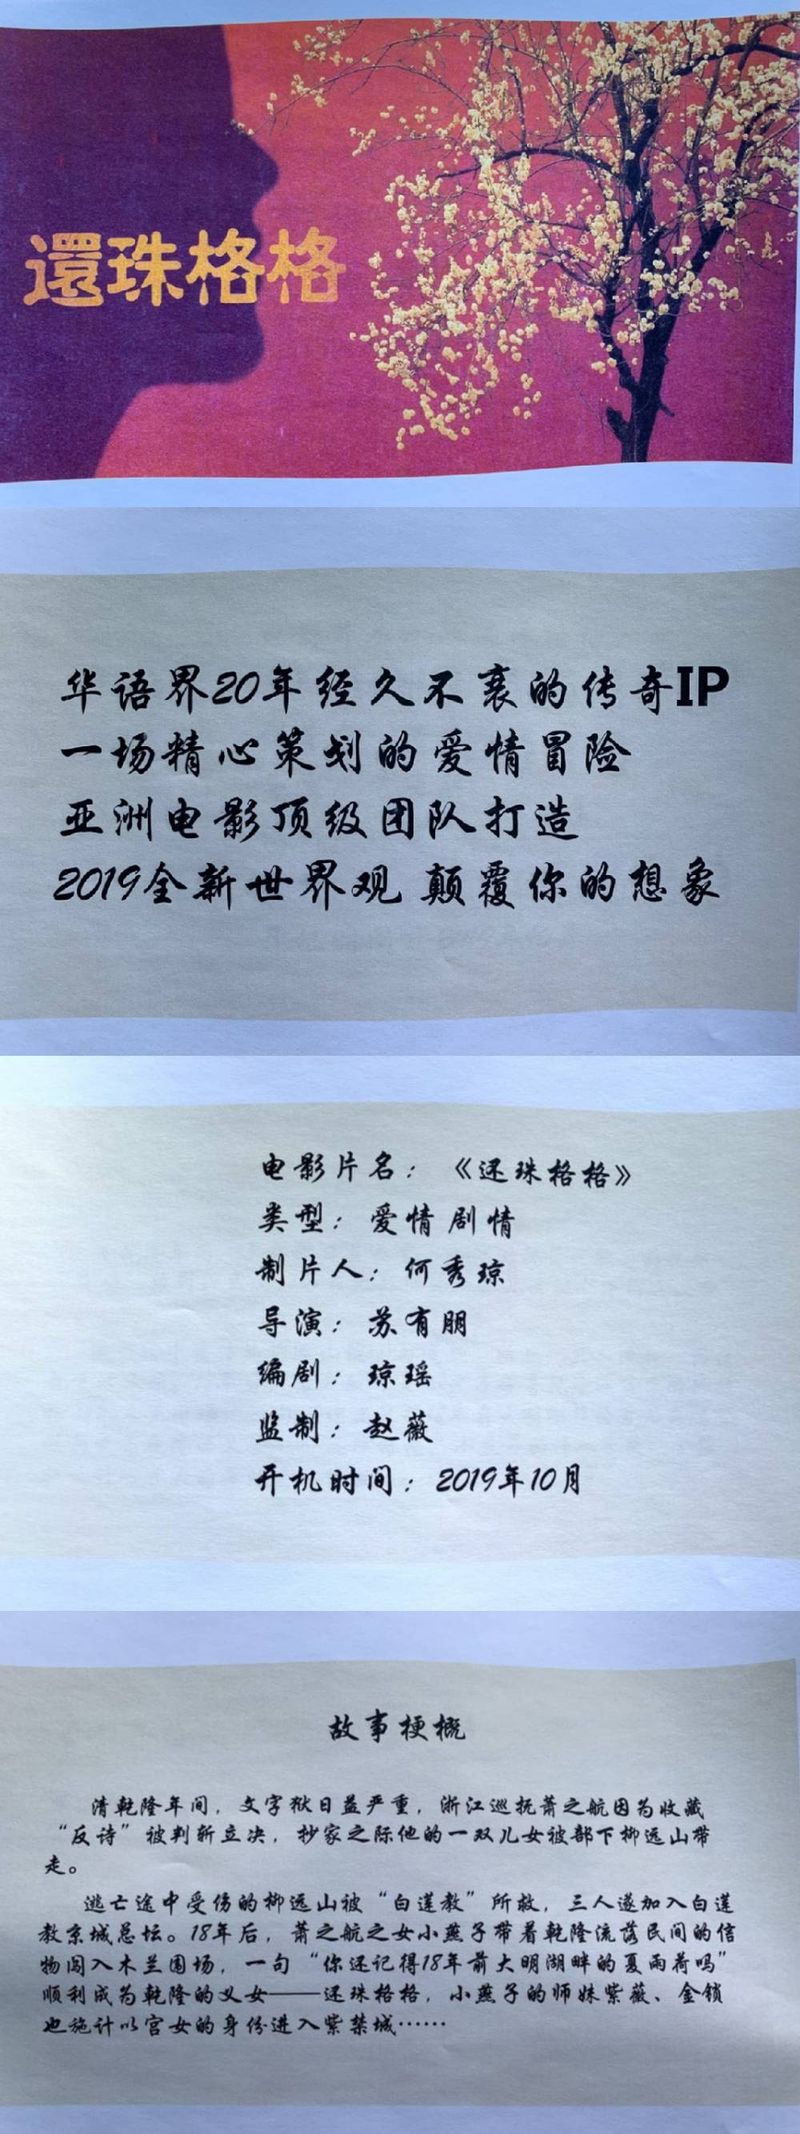 還珠格格
华语界20年经久不衰的传奇IP
一场精心策划的爱情冒险
亚洲电影顶级团队打造
2019全新世界观 颠覆你的想象
电影片名：《还珠格格》
类型：爱情 剧情
制片人：何秀琼
导演：苏有朋
编剧：琼瑶
监制：赵薇
开机时间：2019年10月
故事梗概
清乾隆年间，文字狱日益严重，浙江巡抚萧之航因为收藏
“反诗”被判斩立决，抄家之际他的一双儿女被部下柳远山带
走。
逃亡途中受伤的柳远山被“白莲教”所救，三人遂加入白莲
教京城总坛。18年后，萧之航之女小燕子带着乾隆流落民间的信
物闯入木兰围场，一句“你还记得18年前大明湖畔的夏雨荷吗”
顺利成为乾隆的义女——还珠格格，小燕子的师妹紫薇、金锁
也施计以宫女的身份进入紫禁城……